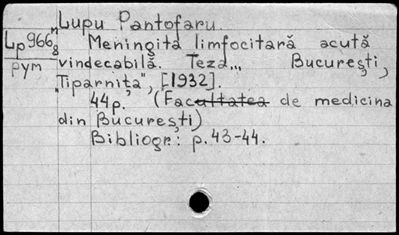 Lupu Pantofaru.
Lp966 8 Meningita limfocitară acută
pym vindecabilă. Teza... București,
„Tiparnița", [1932].
44p. (Facultatea de medicina
din București)
Bibliogr.: p.43-44.